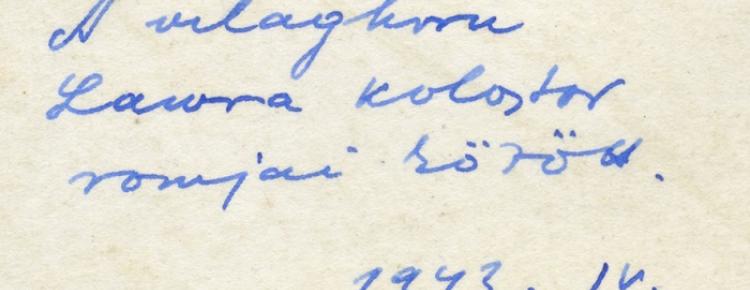 A világhírű
Lawra kolostor
romjai között.
1943. IV.